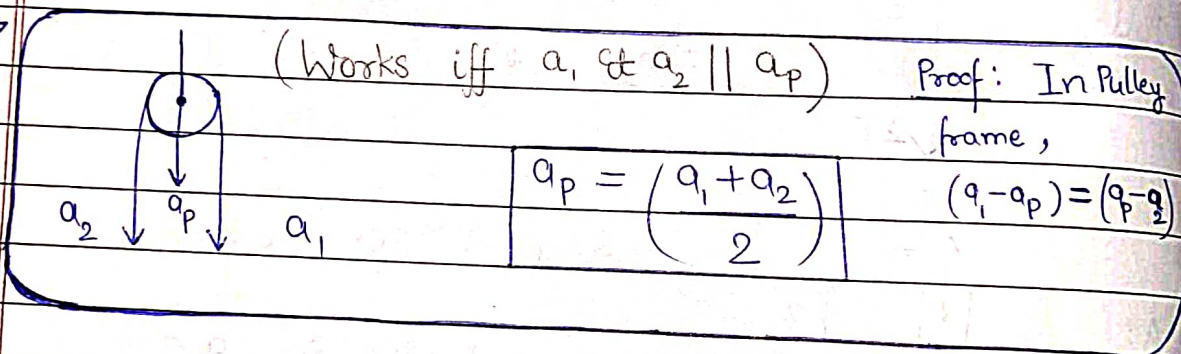 (Works iff a₁ & a₂ || aₚ)
Proof: In Pulley
frame,
aₚ = (a₁ + a₂ / 2)
(a₁ - aₚ) = (aₚ - a₂)
a₂ aₚ a₁